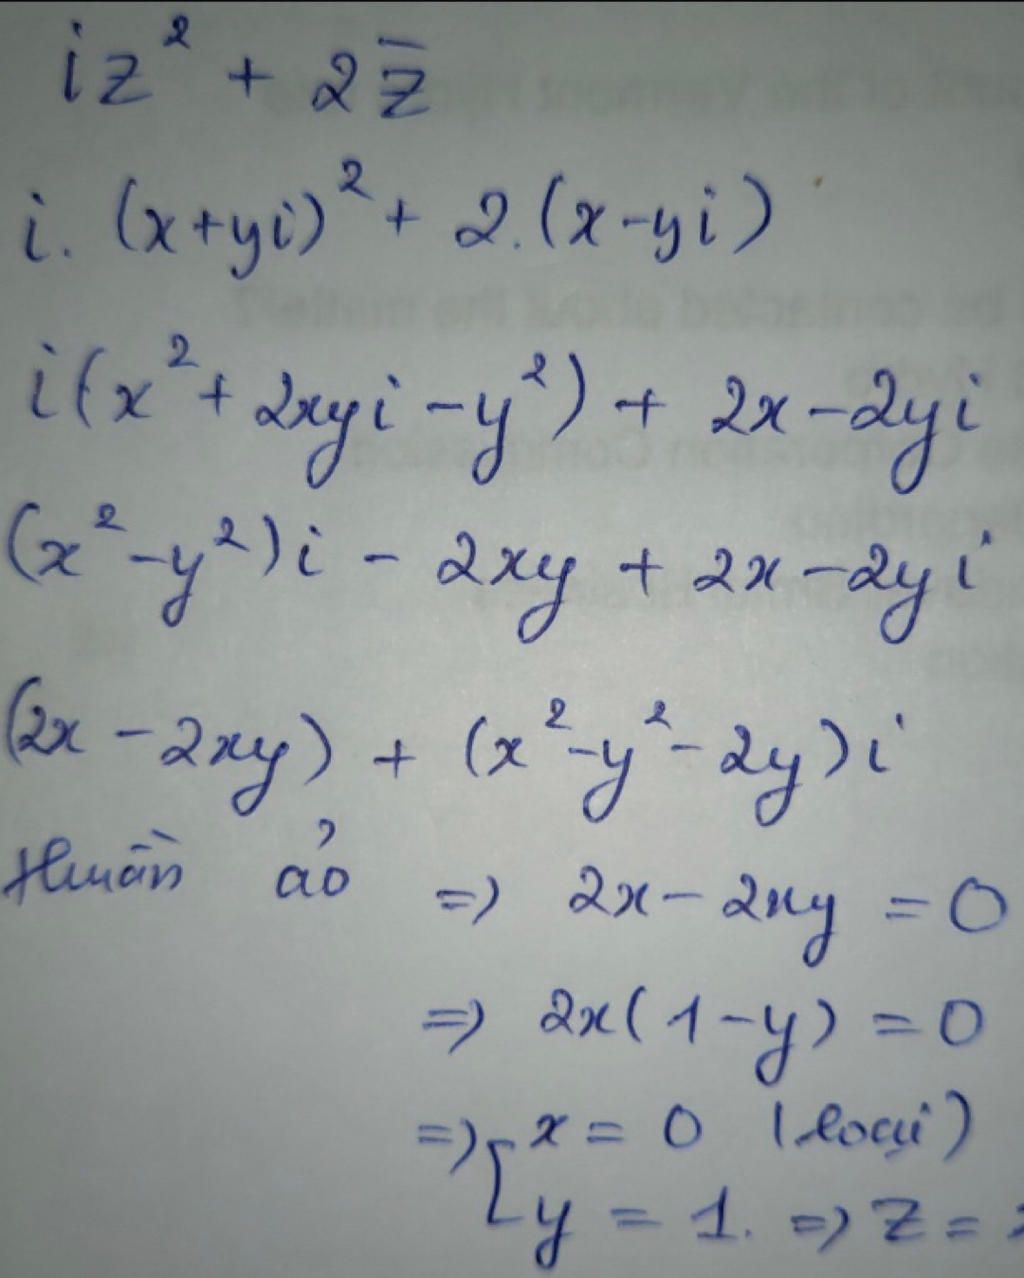 iz² + 2z̅
i. (x+yi)² + 2.(x-yi)
i(x² + 2xyi - y²) + 2x - 2yi
(x² - y²)i - 2xy + 2x - 2yi
(2x - 2xy) + (x² - y² - 2y)i
thuần ảo => 2x - 2xy = 0
=> 2x(1-y) = 0
=> [x = 0 (loại)
y = 1. => z =